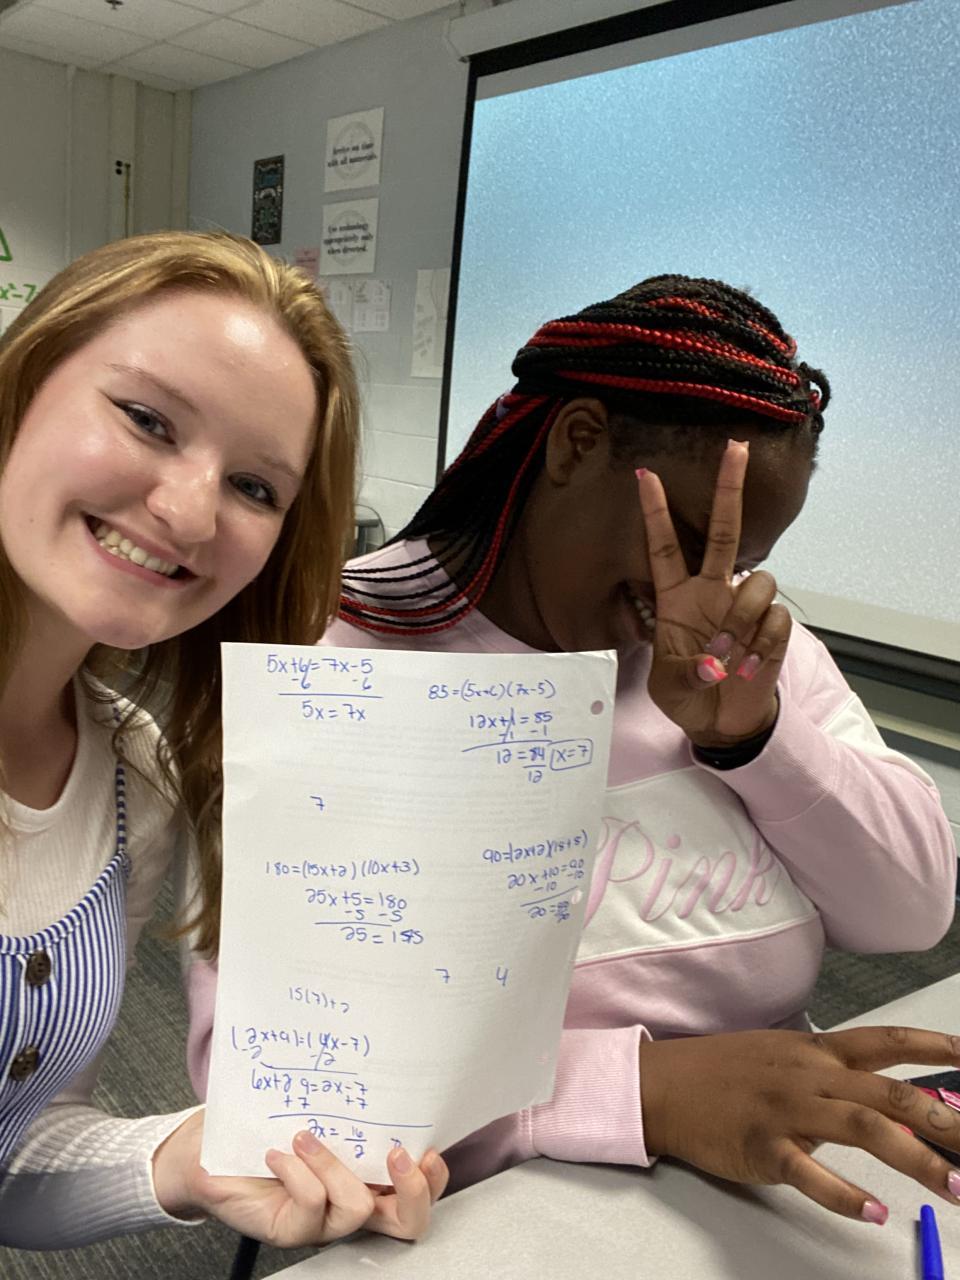 Arrive on time
with all materials.
Use technology
appropriately only
when directed.
x²-7
5x+6=7x-5
-6 -6
5x=7x
85=(5x+6)(7x-5)
12x+1=85
-1 -1
12=84
12
x=7
7
180=(15x+2)(10x+3)
25x+5=180
-5 -5
25=175
20x+10=90
-10 -10
7 4
15(7)+2
(2x+9)=(4x-7)
-2 -2
+7 +7
2x=16
2
Pink